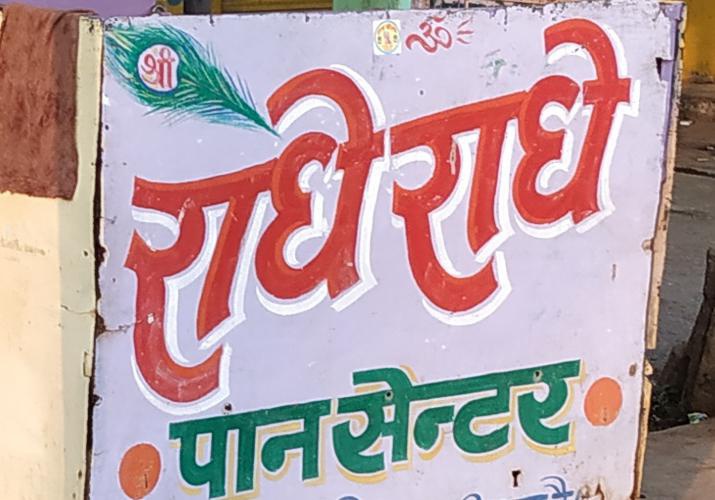 ॐ
श्री
राधे राधे
पान सेन्टर